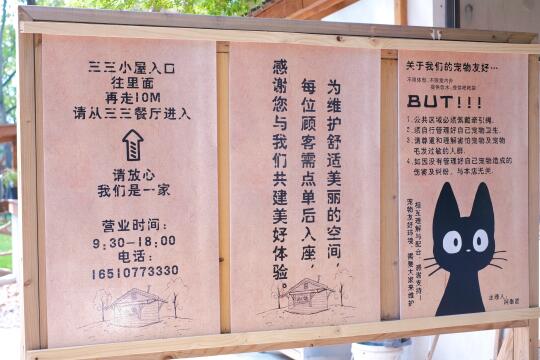 三三小屋入口
往里面
再走10M
请从三三餐厅进入
请放心
我们是一家
营业时间:
9:30-18:00
电话:
16510773330
为维护舒适美丽的空间,
每位顾客需点单后入座,
感谢您与我们共建美好体验。
关于我们的宠物友好…
不限体型, 不限室内外
提供饮水, 提供拾便袋
BUT!!!
1.公共区域必须佩戴牵引绳.
2.须自行管理好自己宠物卫生.
3.请尊重和理解害怕宠物及宠物
毛发过敏的人群.
4.如因没有管理好自己宠物造成的
伤害及纠纷, 与本店无关.
相互理解与配合, 感谢支持!
宠物友好环境, 需要大家来维护
主理人: